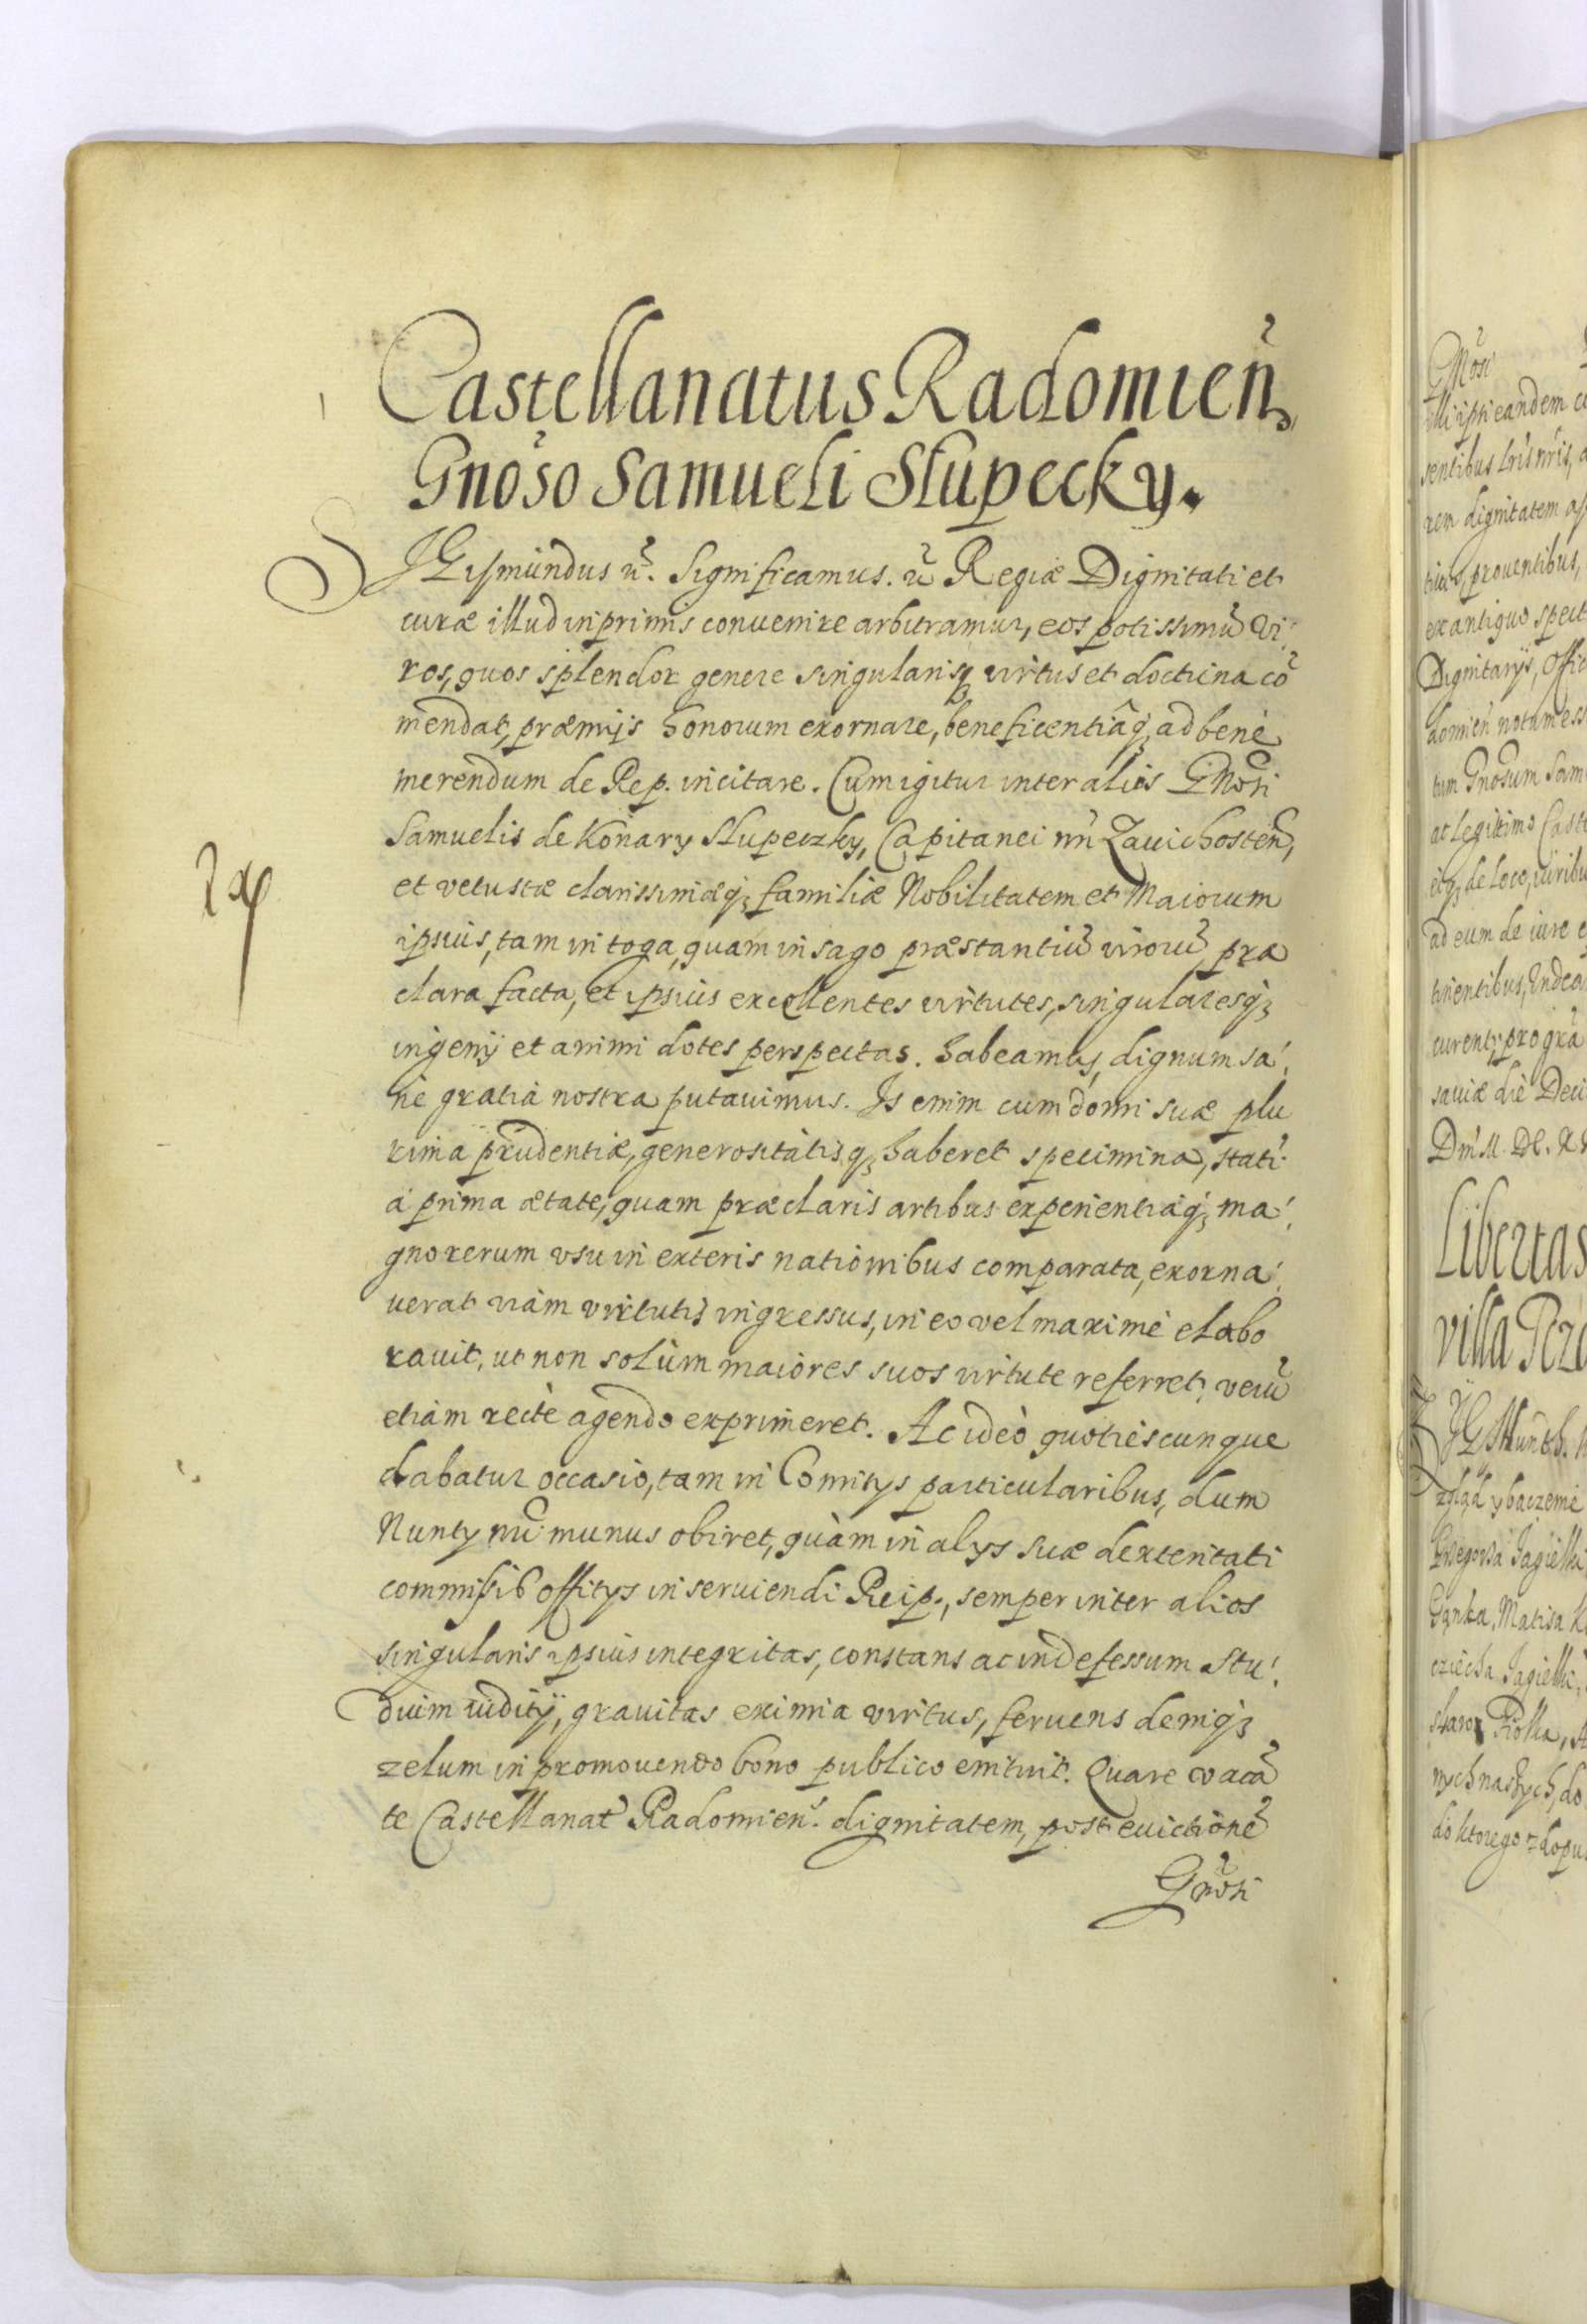 Castellanatus Radomien̄
Gnōso Samueli Słupecky.
SIGismundus ec̃. Significamus. ec̃ Regiæ Dignitati et
curæ illud inprimis convenire arbitramur, eos potissimũ vi-
ros, quos splendor genere singularisq3 virtus et doctrina cõ
mendat, præmijs honorum exornare, beneficentiâq3, ad benè
merendum de Rep. incitare. Cum igitur inter alios Gnõsi
Samuelis de Konary Słupeczky, Capitanei nr̃i Zavichosten̄,
et vetustæ clarissimæq3 familiæ Nobilitatem et Maiorum
ipsius, tam in toga, quam in sago præstantiũ virorũ præ
clara facta, et ipsius excellentes virtutes, singularesq3
ingenij et animi dotes perspectas. habeamus, dignum sa-
nè gratia nostra putavimus. Is enim cum domi suæ plu
rima prudentiæ, generositatisq3 haberet specimina, stati
à prima ætate, quam præclaris artibus experientiaq3 ma-
gno rerum usu in exteris nationibus comparata, exorna-
verat viam virtutis ingressus, in eo vel maximè elabo
ravit, ut non solùm maiores suos virtute referret, verũ
etiam rectè agendo exprimeret. Ac ideò quotiescunque
dabatur occasio, tam in Comitys particularibus, dum
Nunty nr̃i munus obiret, quàm in alys suæ dexteritati
commissib offitys inserviendi Reip., semper inter alios
singularis ipsius integritas, constans ac indefessum stu-
duim iuditÿ, gravitas eximia virtus, fervens deniq3
zelum in promovendo bono publico enituit. Quare vacã
te Castellanat̃ Radomien̄. dignitatem, post evictionẽ
Gnõsi
Gnõsi
illi ipsi eandem c
sentibus lr̃is nr̃is, a
ren dignitatem a
proventibus,
ex antiquo spect
Dignitarijs, Offic
domien̄ notum ess
tum Gnõsum Sam
ac legitimo Caste
eiq3 de loco, iuribu
ad eum de iure e
tinentibus, Undea
curent, pro gra
saviæ die Deci
Dñi M. DC. X
Libertas
villa Pcz
ZIGMunth.
zgląd y baczenie
Grzegorza Jagiełki
Ganka, Matisa K
cziecha Jagiełki,
Piołka, A
nych nastych, do
do ktorego z dopu